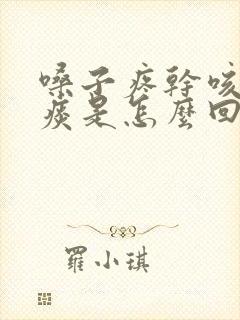 嗓子疼幹咳
痰是怎麼回
羅小琪